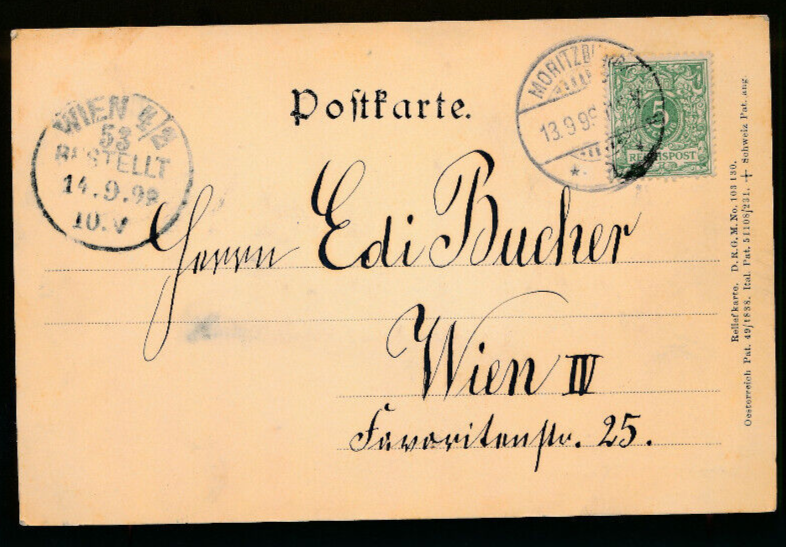 Postkarte.
WIEN 4/2
53
BESTELLT
14.9.99
10.V
MORITZBURG
13.9.99
5
REICHSPOST
Herrn Edi Bucher
Wien IV
Favoritenstr. 25.
Reliefkarte. D.R.G.M. No. 103 130.
Oesterreich Pat. 49/1838. Ital. Pat. 51108/231. + Schweiz Pat. ang.